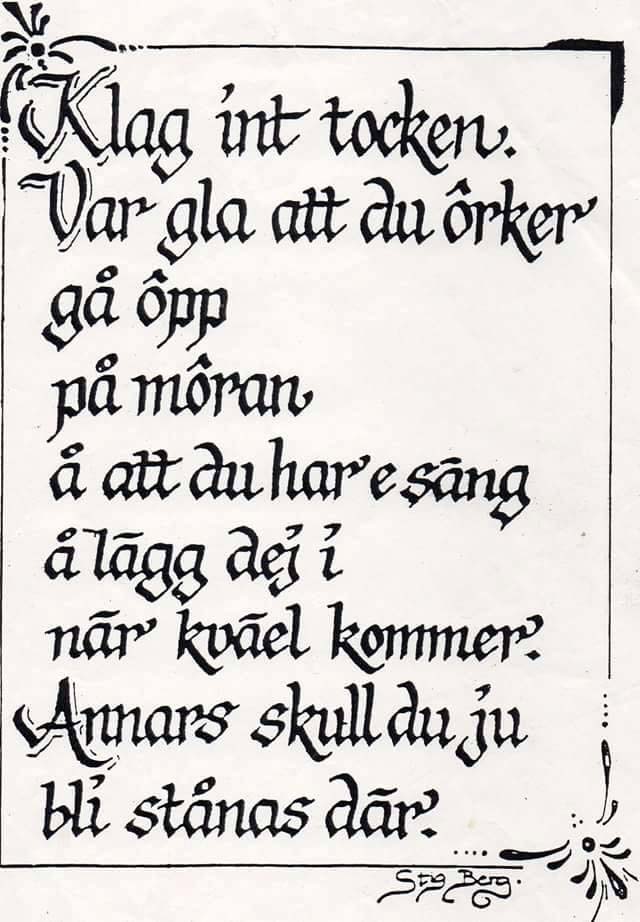 Klag int tocken.
Var gla att du ôrker
gå ôpp
på môran
å att du har e säng
å lägg dej i
när kväel kommer.
Annars skull du ju
bli stånas där.
Stig Berg.